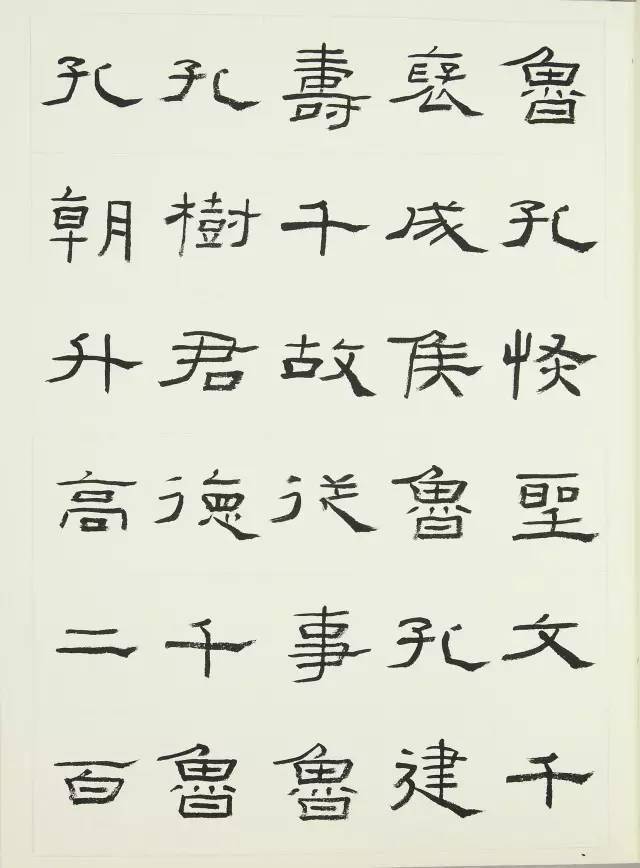 魯孔恢聖文千
褒成侯魯孔建
壽千故從事魯
孔樹君德千魯
孔朝升高二百